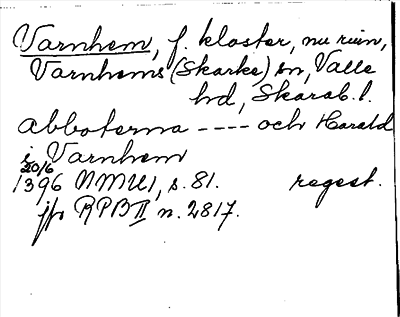 Varnhem, f. kloster, nu ruin,
Varnhems (Skarke) sn, Valle
hd, Skarab. l.
abboterna ---- och Harald
i Varnhem
20/6
1396 NMU 1, s. 81. regest.
jfr RPB II n. 2817.